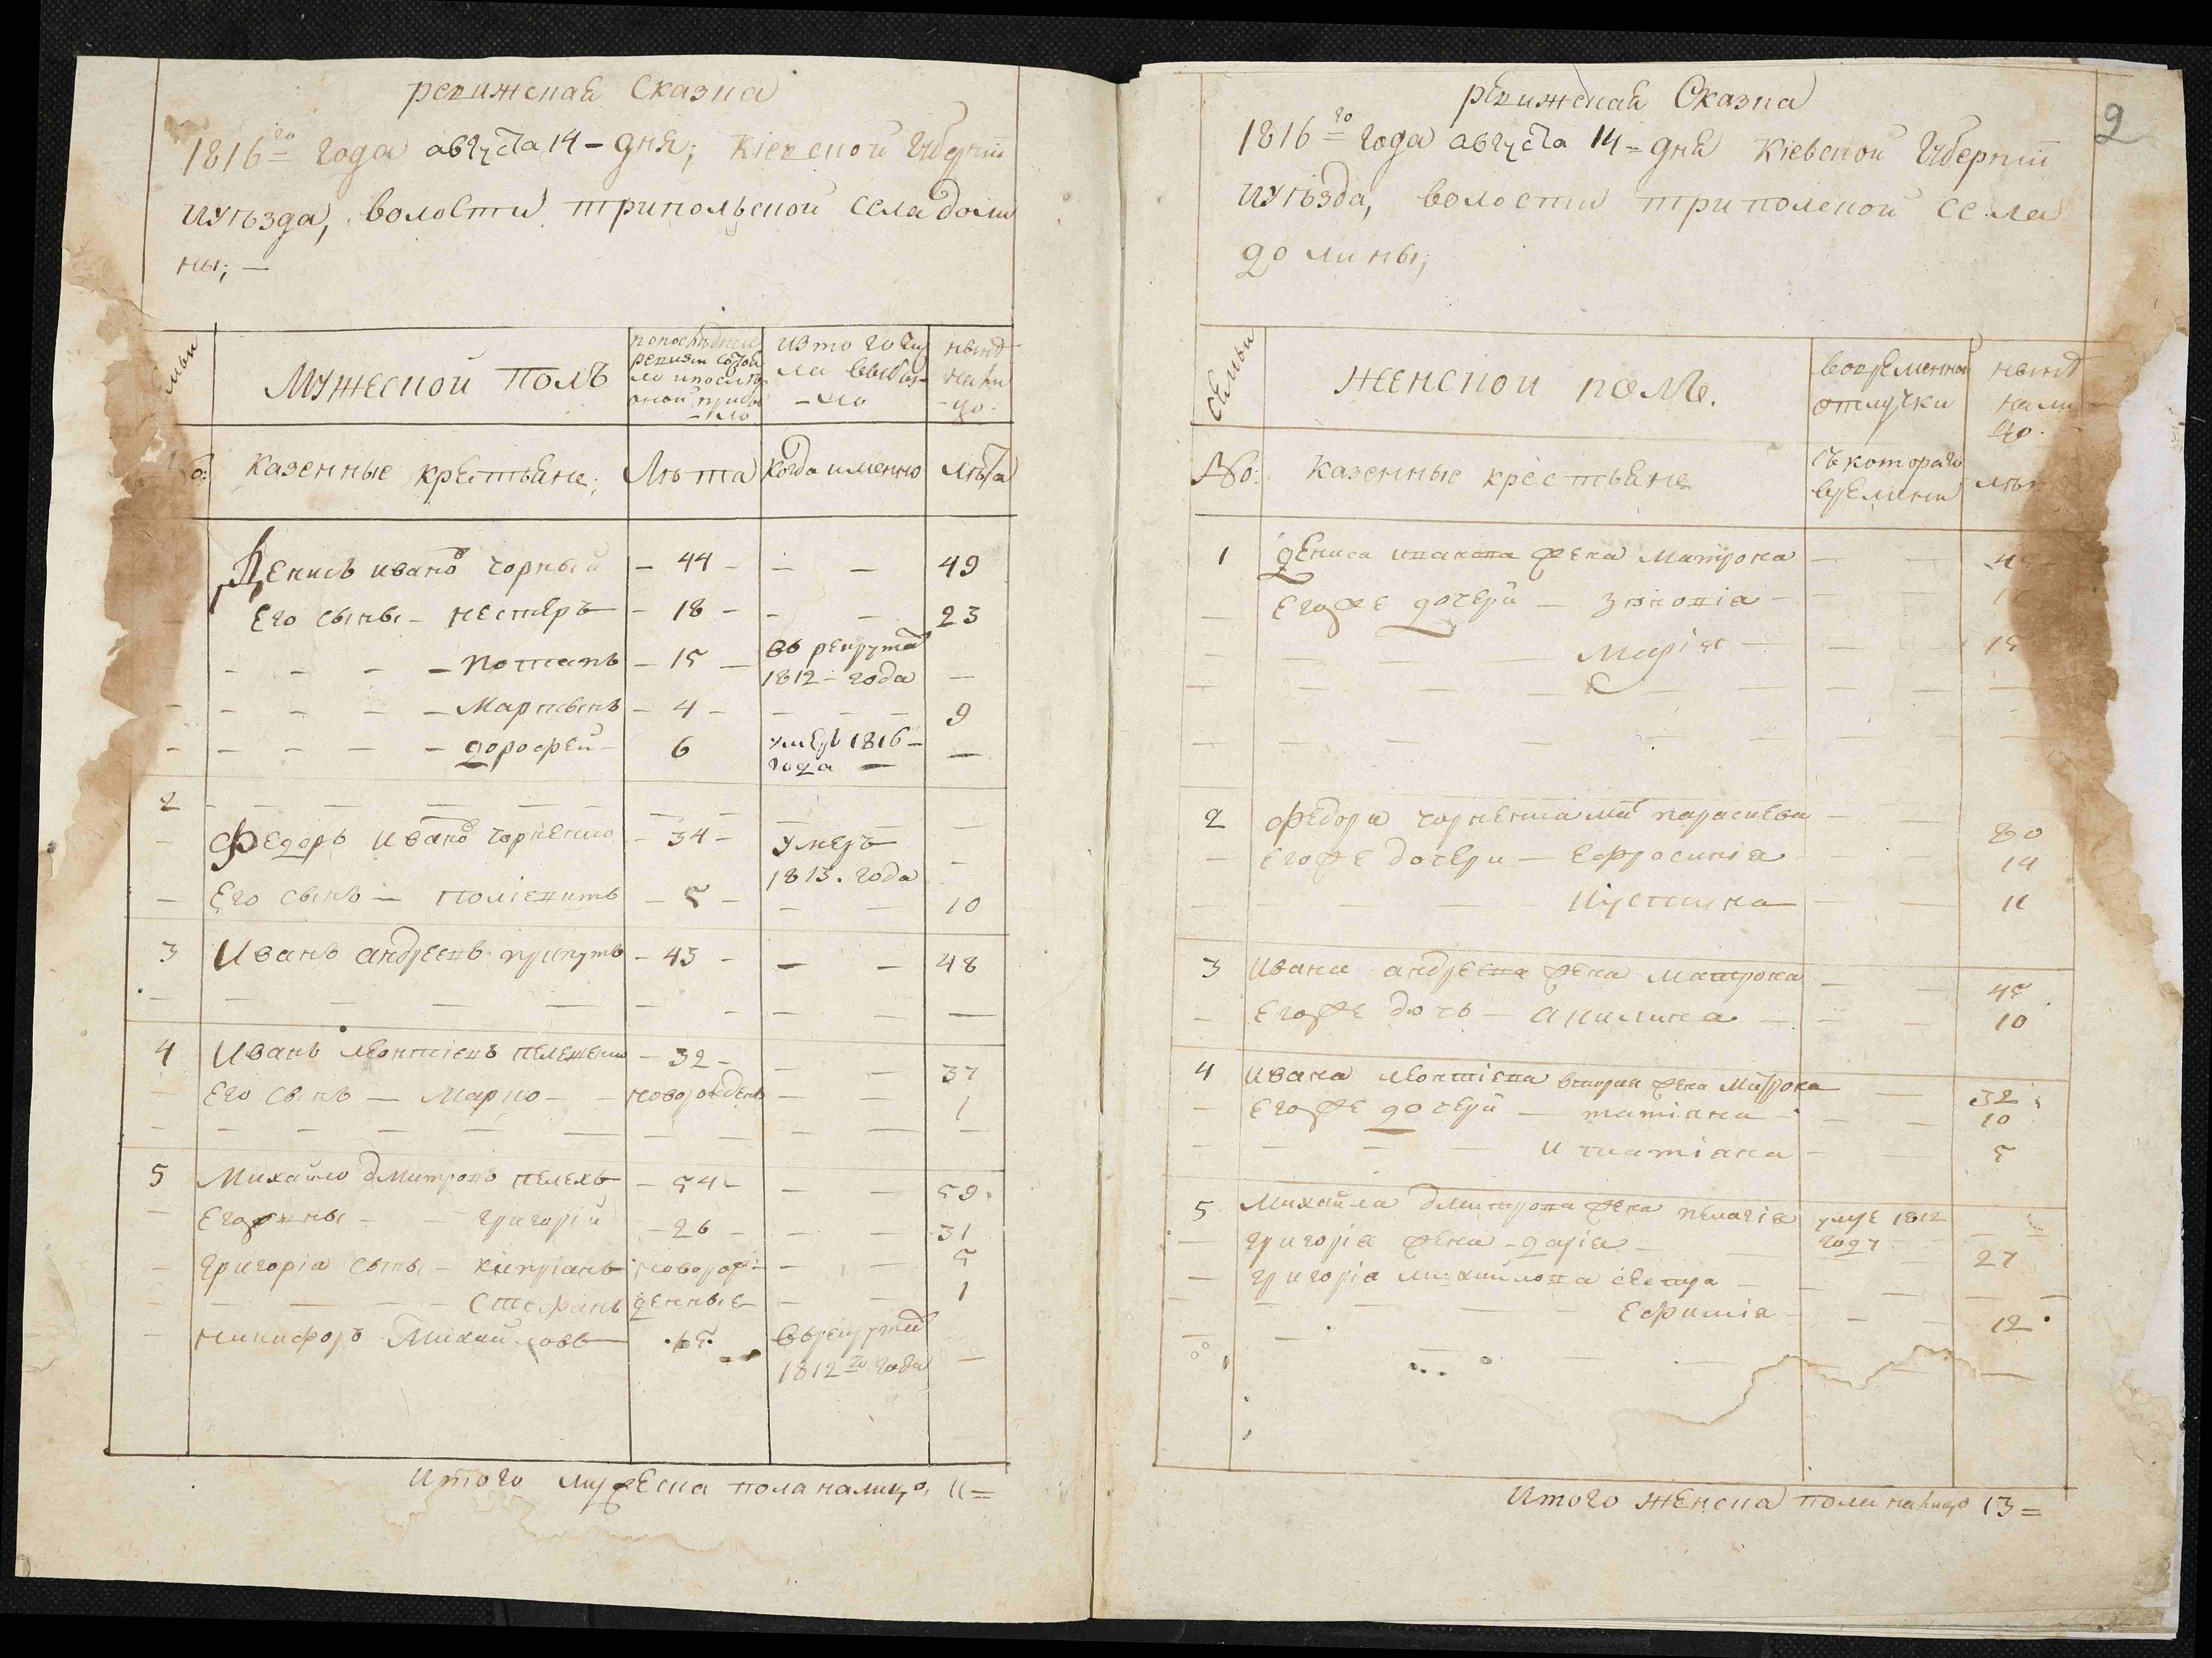 ревижская Сказка
1816го года августа 14 - дня; Кіевской губерніи
иуѣзда, волости трипольской села доли
ны; —
Мужеской полъ
попоследней ревизіи состоя ло ипослѣ оной прибы - ло
изъ того чи ла выбы - ло
нынѣ нали - цо.
казенные крестьяне; Лѣта когда именно лѣта
Денисъ ивано чорный - 44 - - — 49
Его сыны - нестеръ - 18 - - — 23
- - - - потапъ - 15 — въ рекруты 1812 - года —
- - - - — Маркіянъ - 4 - — — — 9
- - — - - дорофей - 6 умеръ 1816 - года — —
2
Федоръ Ивано чорненко - 34 - умеръ 1813. года -
Его сынъ — поліектъ - 5 - - — 10
3 Иванъ андреевъ припутъ - 43 - — — 48
4 Иванъ леонтіевъ пелешенко - 32 - — — 37
Его сынъ — Марко - - новорожденъ — — 1
5 Михайло дмитровъ пелехъ - 54 - — — 59.
Его сыны - - григорій - 26 - — — 31
григорія сыны - кипріанъ новорож - — 5
— — — Стефанъ денные - — — 1
никифоръ Михайловъ 15. въ рекруты 1812го года —
Итого мужеска пола налицо. 11=
2
ревижская Сказка
1816го года августа 14 = дня Кіевской губерніи
иуѣзда, волости трипольской села
долины;
семьи женской полъ.
вовременной отлучки
нынѣ нали цо.
No: казенные крестьяне съ котораго времени лѣт
1 дениса иванова жена Матрона — —
егоже дочери — зѣновія -
— — — Марія — — — 15
2 федора чорненка мат параскева — — 80
егоже дочери — Ефросинія — — 14
— — — Иустинна — — 11
3 Ивана андреева жена Матрона — — 45
— егоже дочь — акилина — — — 10
4 Ивана леонтіева вторая жена Матрона — 32
- егоже дочери — татіана — — 10
— — — и татіана - — 5
5 Михайла дмитрова жена пелагія умре 1812 году
— григорія жена - дарія — — 27
— григорія михайлова сестра —
— — Ефимія - — — 12
Итого женска пола налицо 13 =